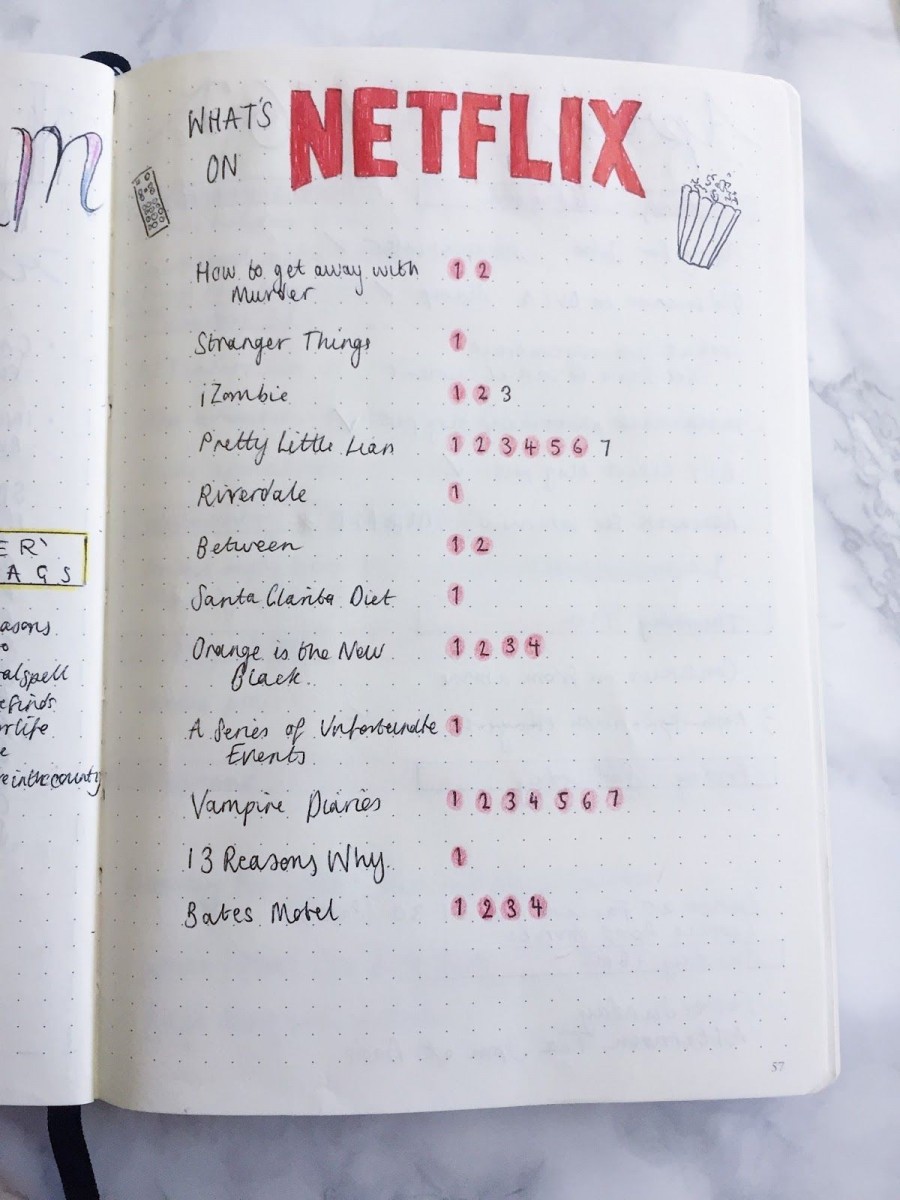 m
ER'
AGS
asons
o
alspell
efinds
rlife
e
reinthecounty
WHAT'S NETFLIX
ON
How to get away with 1 2
Murder
Stranger Things 1
iZombie 1 2 3
Pretty Little Liars 1 2 3 4 5 6 7
Riverdale 1
Between 1 2
Santa Clarita Diet 1
Orange is the New 1 2 3 4
Black
A Series of Unfortunate 1
Events
Vampire Diaries 1 2 3 4 5 6 7
13 Reasons Why 1
Bates Motel 1 2 3 4
57